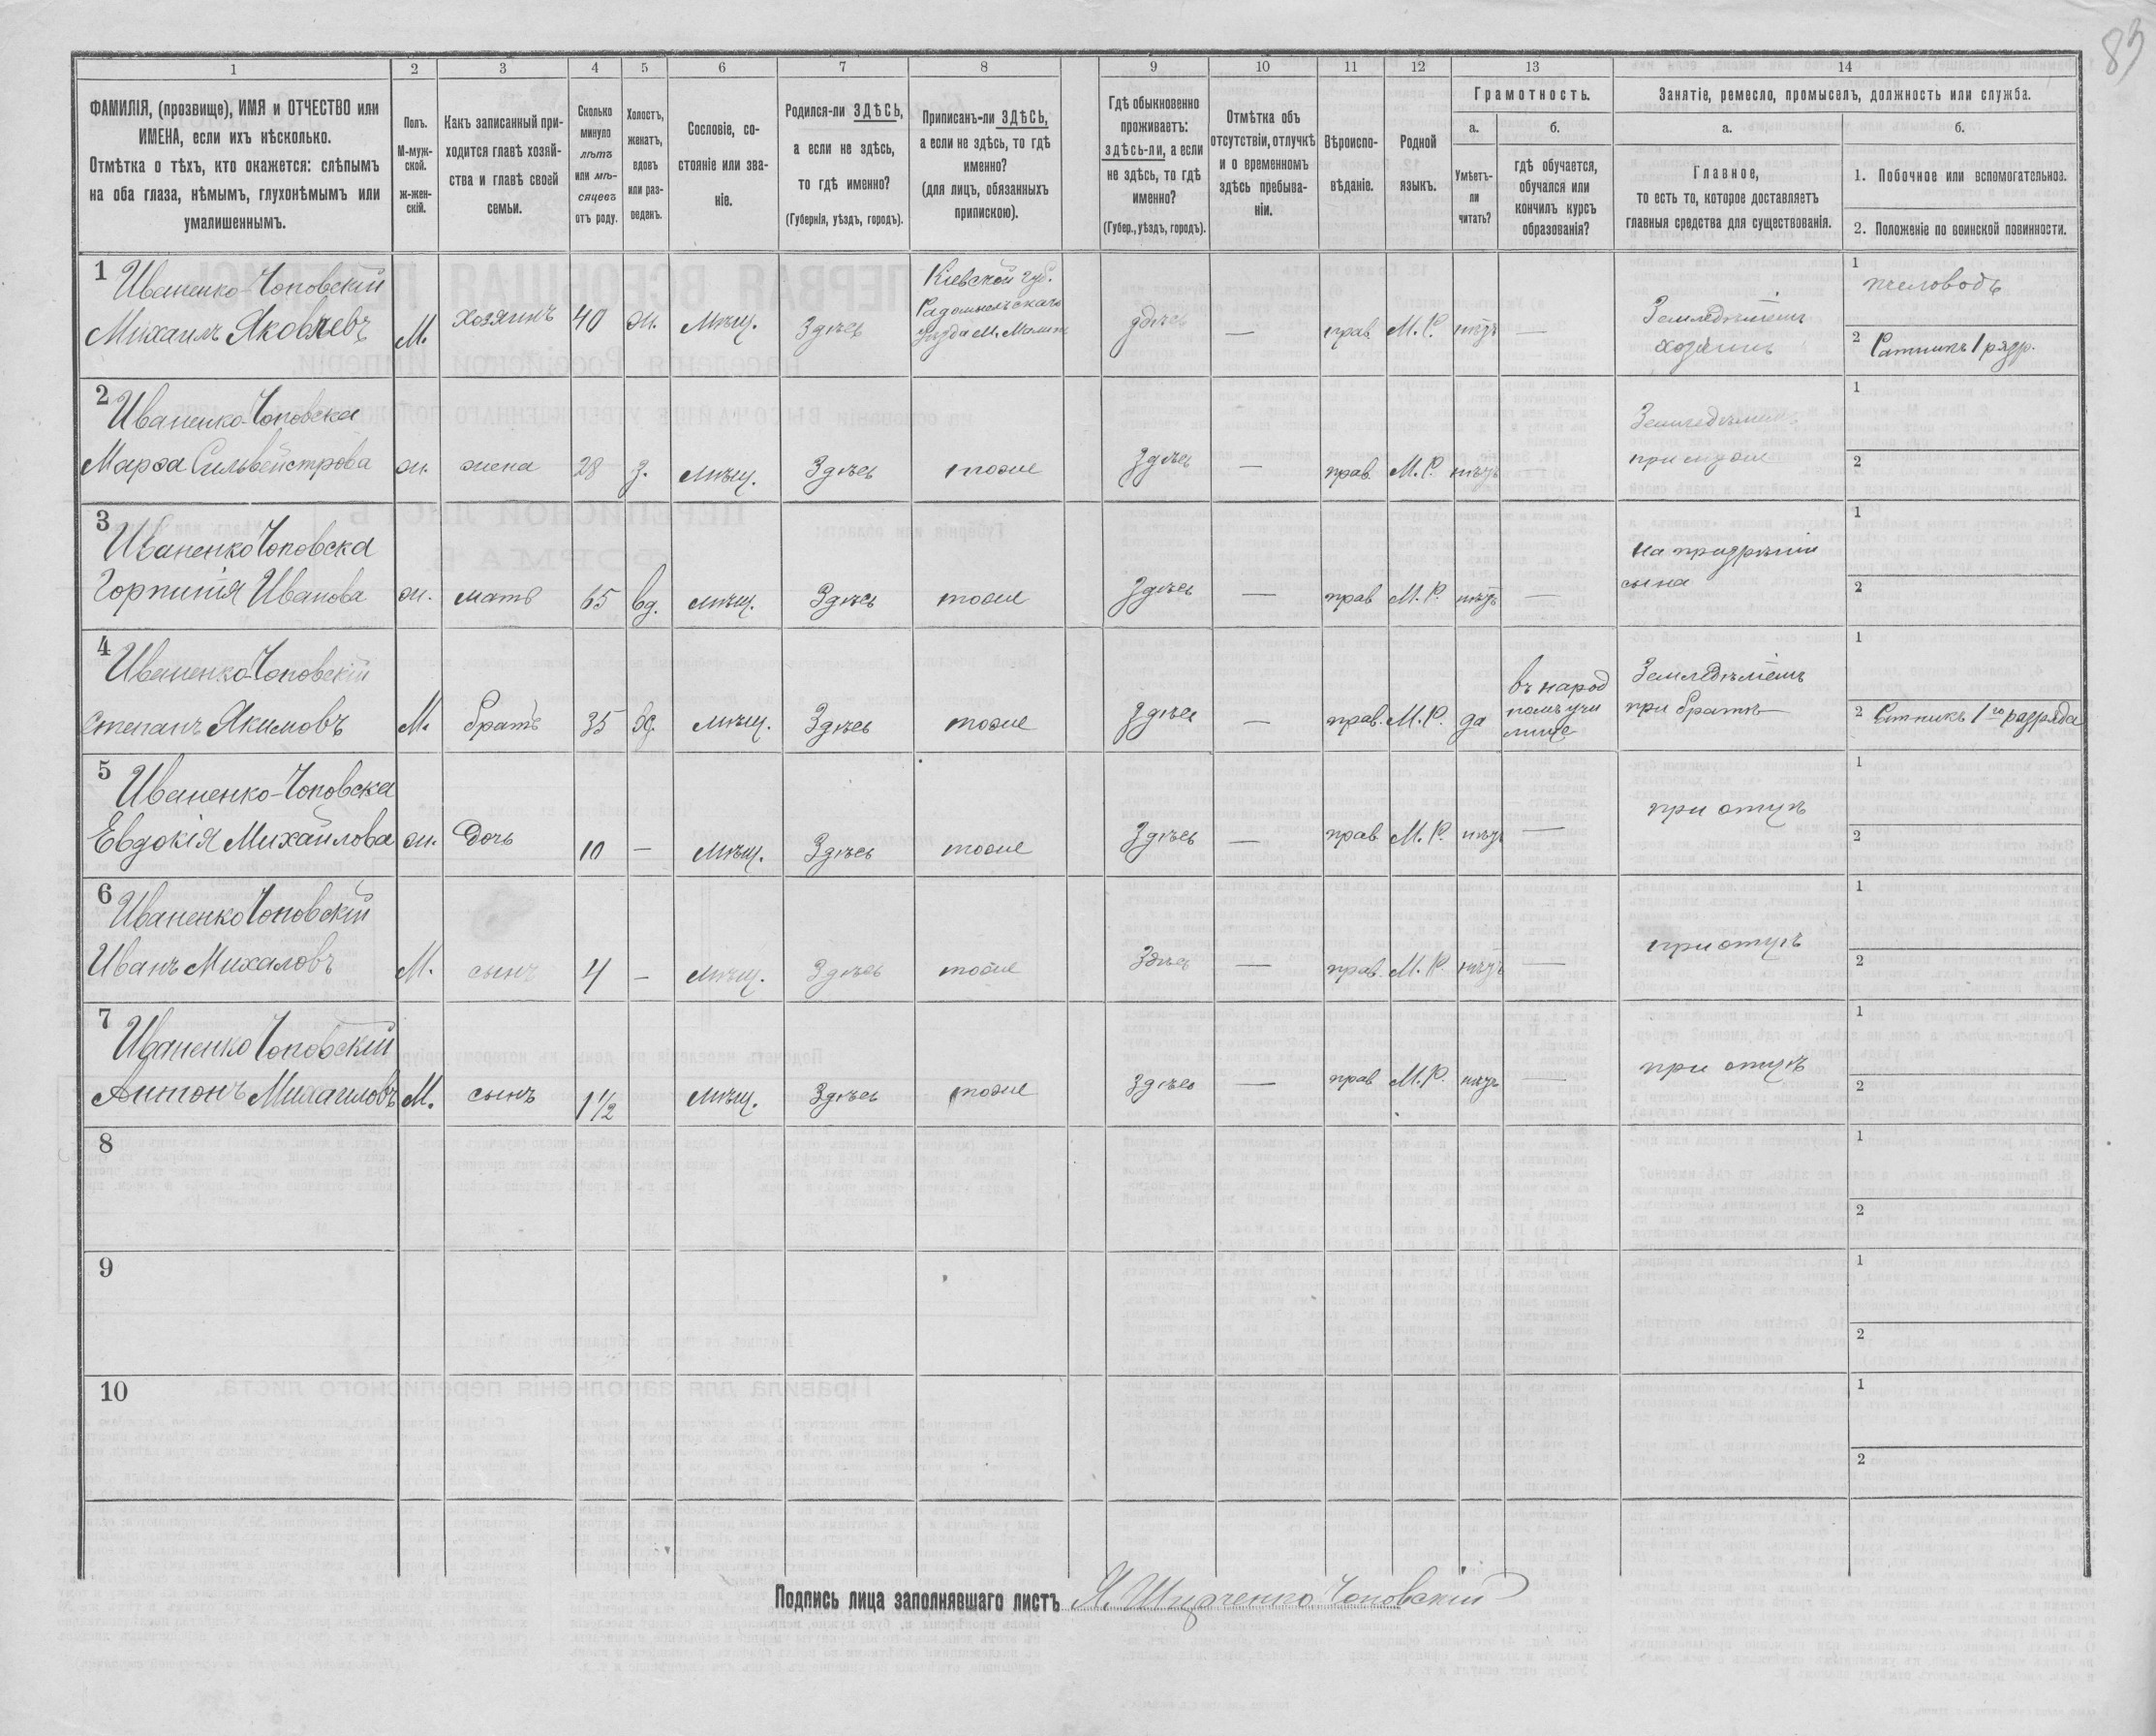 83
1 2 3 4 5 6 7 8 9 10 11 12 13 14
ФАМИЛІЯ, (прозвище), ИМЯ и ОТЧЕСТВО или
ИМЕНА, если ихъ нѣсколько.
Отмѣтка о тѣхъ, кто окажется: слѣпымъ
на оба глаза, нѣмымъ, глухонѣмымъ или
умалишеннымъ.
Полъ.
М-муж-
ской.
ж-жен-
скій.
Какъ записанный при-
ходится главѣ хозяй-
ства и главѣ своей
семьи.
Сколько
минуло
лѣтъ
или мѣ-
сяцевъ
отъ роду.
Холостъ,
женатъ,
вдовъ
или раз-
веденъ.
Сословіе, со-
стояніе или зва-
ніе.
Родился-ли ЗДѢСЬ,
а если не здѣсь,
то гдѣ именно?
(Губернія, уѣздъ, городъ).
Приписанъ-ли ЗДѢСЬ,
а если не здѣсь, то гдѣ
именно?
(для лицъ, обязанныхъ
припискою).
Гдѣ обыкновенно
проживаетъ:
здѣсь-ли, а если
не здѣсь, то гдѣ
именно?
(Губер., уѣздъ, городъ).
Отмѣтка объ
отсутствіи, отлучкѣ
и о временномъ
здѣсь пребыва-
ніи.
Вѣроиспо-
вѣданіе.
Родной
языкъ.
Грамотность.
а.
Умѣетъ-
ли
читать?
б.
гдѣ обучается,
обучался или
кончилъ курсъ
образованія?
Занятіе, ремесло, промыселъ, должность или служба.
а.
Главное,
то есть то, которое доставляетъ
главныя средства для существованія.
б.
1. Побочное или вспомогательное.
2. Положеніе по воинской повинности.
1
Иваненко-Чоповскій
Михаилъ Яковлевъ
М.
хозяинъ
40
ж.
Мѣщ.
Здѣсь
Кіевской губ.
Радомысльскаго
уѣзда М. Малинъ
здѣсь
—
прав
М. Р.
нѣтъ
—
Земледѣліемъ
хозяинъ
1
пчеловодъ
2 Ратникъ 1 разр.
2
Иваненко-Чоповска
Марѳа Сильвейстрова
ж.
жена
28
з.
мѣщ.
Здѣсь
тоже
Здѣсь
—
прав.
М. Р.
нѣтъ
Земледѣліем
при мужѣ
1
2
3
Иваненко Чоповска
Горпинія Иванова
ж.
мать
65
вд.
мѣщ.
Здѣсь
тоже
Здѣсь
—
прав
М. Р.
нѣтъ
—
на призрѣніи
сына
1
2
4
Иваненко-Чоповскій
Степанъ Якимовъ
М.
братъ
35
мѣщ.
Здѣсь
тоже
Здѣсь
—
прав.
М. Р.
да
въ народ
номъ учи
лище
Земледѣліемъ
при братѣ
1
2 Ратникъ 1го разряда
5
Иваненко-Чоповска
Евдокія Михайлова
ж.
дочь
10
—
Мѣщ.
Здѣсь
тоже
Здѣсь
—
прав
М. Р.
нѣтъ
—
при отцѣ
1
2
6
Иваненко Чоповскій
Иванъ Михаловъ
М.
сынъ
4
—
Мѣщ.
Здѣсь
тоже
Здѣсь
—
прав.
М. Р.
нѣтъ
—
при отцѣ
1
2
7
Иваненко Чоповскій
Антонъ Михаиловъ
М.
сынъ
1 1/2
Мѣщ.
Здѣсь
тоже
Здѣсь
—
прав
М. Р.
нѣтъ
—
при отцѣ
1
2
8
1
2
9
1
2
10
1
2
Подпись лица заполнявшаго листъ Чоповскій